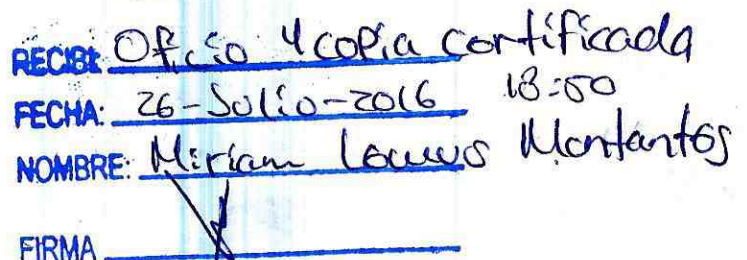 RECIBE: Oficio y copia certificada
FECHA: 26-Julio-2016 18:50
NOMBRE: Miriam Montantos
FIRMA